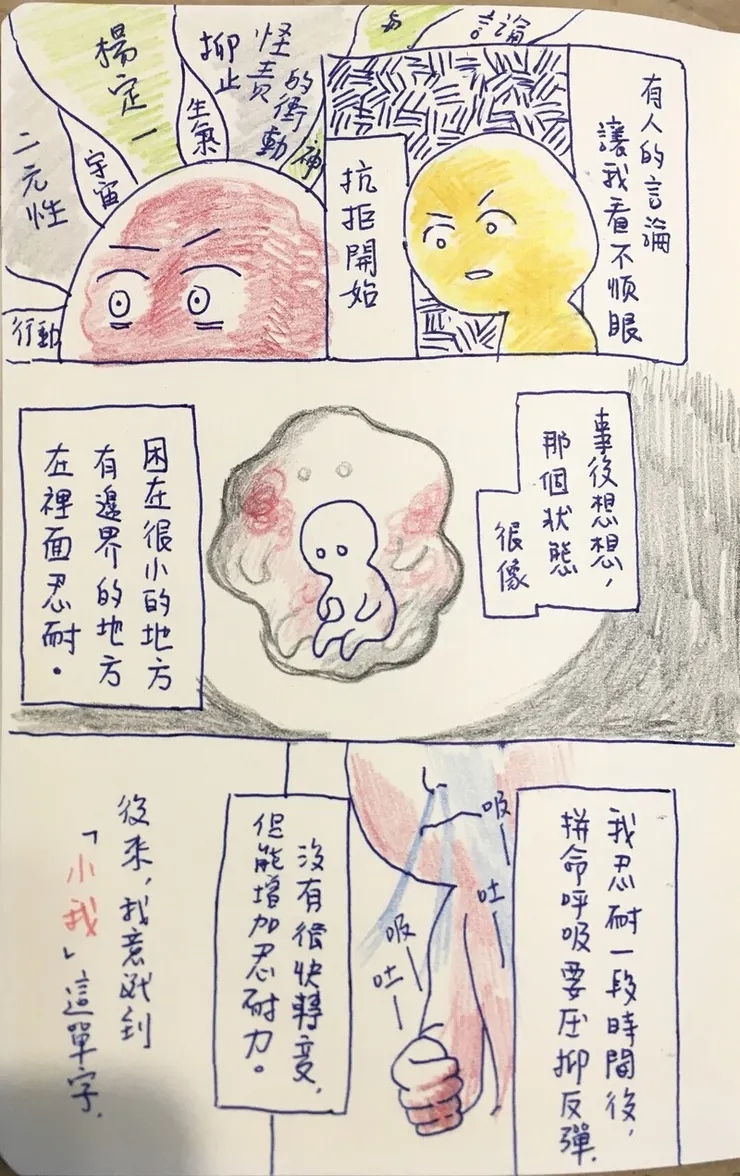 有人的言論
讓我看不順眼
抗拒開始
言論
的衝動
怪責
抑止
生氣
楊定一
宇宙
二元性
行動
事後想想，
那個狀態
很像
困在很小的地方
有邊界的地方
在裡面忍耐。
我忍耐一段時間後，
拼命呼吸要压抑反彈.
吸—
吐—
吸—
吐—
沒有很快轉變，
但能增加忍耐力。
後來，我意識到
「小我」這單字.